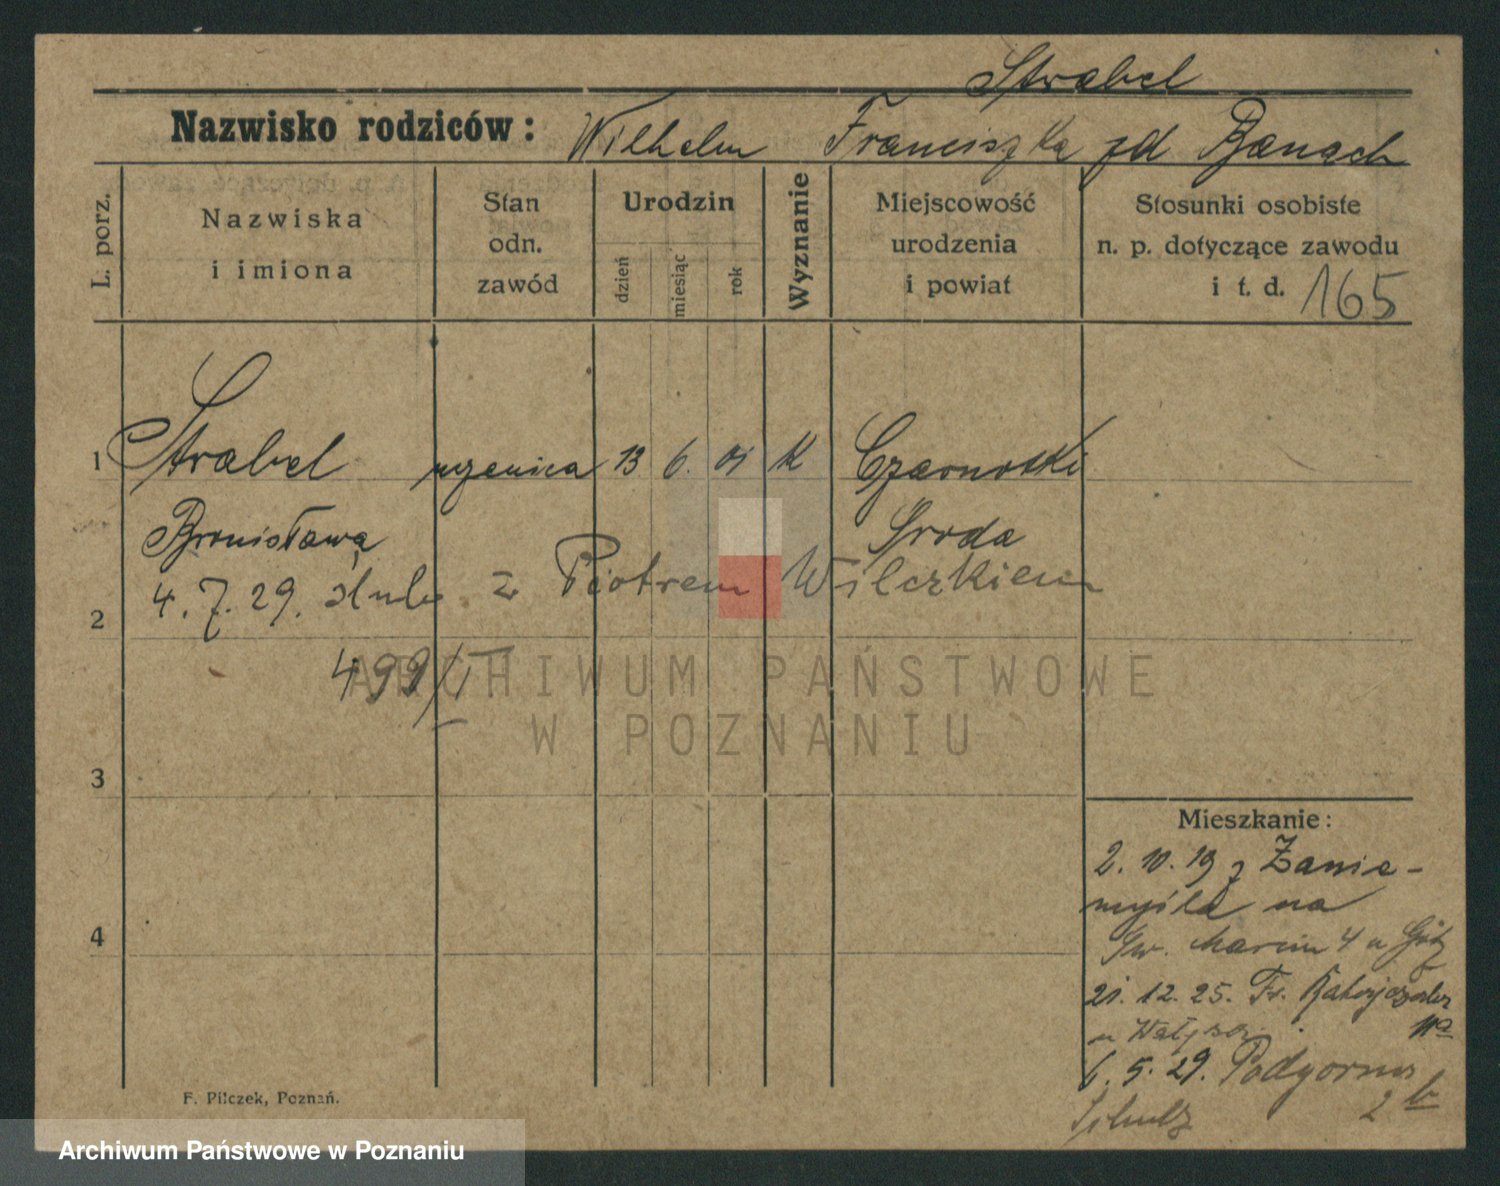 Strabel
Nazwisko rodziców: Wilhelm Franciszka zd Banach
L. porz.
Nazwiska
i imiona
Stan
odn.
zawód
Urodzin
dzień
miesiąc
rok
Wyznanie
Miejscowość
urodzenia
i powiat
Stosunki osobiste
n. p. dotyczące zawodu
i t. d. 165
1 Strabel uczenica 13 6. 01 K Czarnotki
Bronisława Środa
4. 7. 29. ślub z Piotrem Wilczkiem
2
499/II
ARCHIWUM PAŃSTWOWE
W POZNANIU
3
Mieszkanie:
2. 10. 19 z Zanie-
myśla na
Św. Marcin 4 u
4
21. 12. 25. Fr. Ratajczaka
11a
6. 5. 29. Podgorna
Schulz 2 b
F. Pilczek, Poznań.
Archiwum Państwowe w Poznaniu